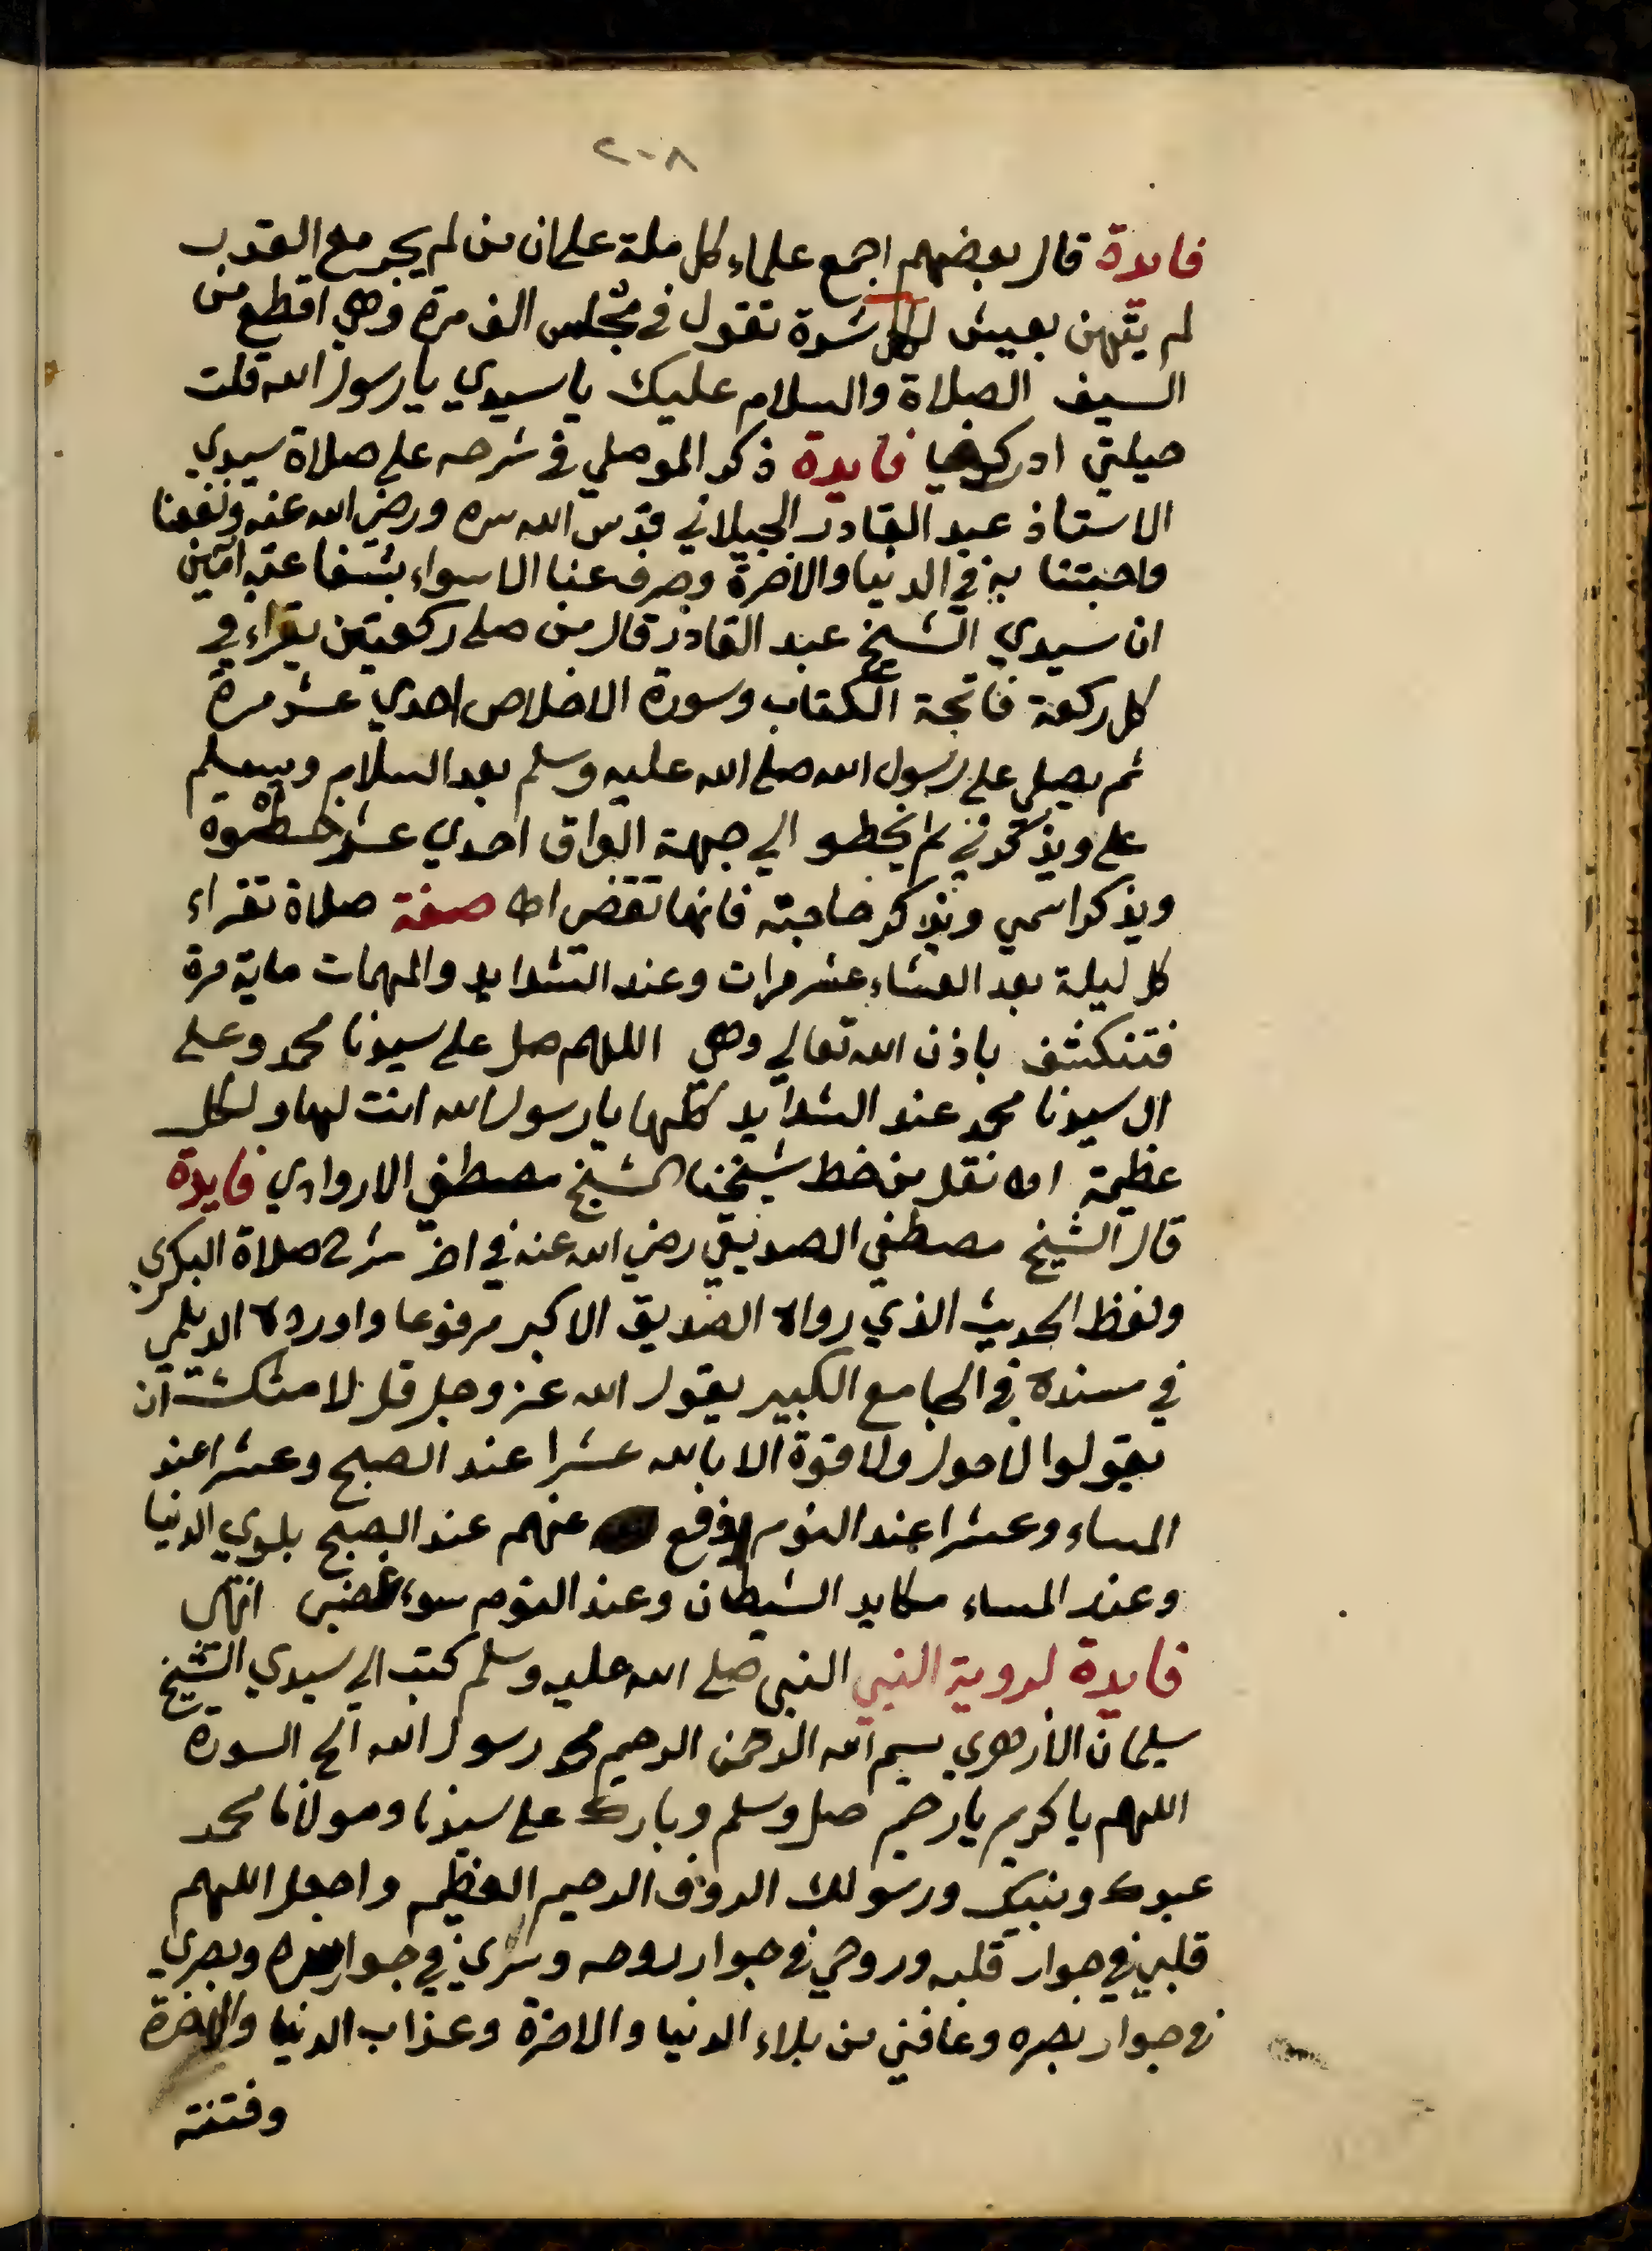 ٢٠٨
فايدة قال بعضهم اجمع علماء كل ملة على ان من لم يجر مع القدر
لم يتهن بعيش لكل شدة تقول في مجلس الف مرة وهي اقطع من
السيف الصلاة والسلام عليك يا سيدي يا رسول الله قلت
حيلتي ادركني فايدة ذكر الموصلي في شرحه على صلاة سيدي
الاستاذ عبد القادر الجيلاني قدس الله سره ورضي الله عنه ونفعنا
واحبتنا به في الدنيا والاخرة وصرف عنا الاسواء بشفاعته امين
ان سيدي الشيخ عبد القادر قال من صلى ركعتين يقراء في
كل ركعة فاتحة الكتاب وسورة الاخلاص احدي عشر مرة
ثم يصلي على رسول الله صلى الله عليه وسلم بعد السلام ويسلم
على ويذكرني ثم يخطو الي جهة العراق احدي عشر خطوة
ويذكر اسمي ويذكر حاجته فانها تقضى اه صفة صلاة تقراء
كل ليلة بعد العشاء عشر مرات وعند الشدايد والمهمات ماية مرة
فتنكشف باذن الله تعالي وهي اللهم صل على سيدنا محمد وعلى
ال سيدنا محمد عند الشدايد كلها يا رسول الله انت لها ولكل
عظيمة اه نقل من خط شيخنا الشيخ مصطفي الاروادي فايدة
قال الشيخ مصطفي الصديقي رضي الله عنه في اخر شرح صلاة البكري
ولفظ الحديث الذي رواه الصديق الاكبر مرفوعا واورده الديلمي
في مسنده في الجامع الكبير يقول الله عز وجل قل لامتك ان
يقولوا لا حول ولا قوة الا بالله عشرا عند الصبح وعشرا عند
المساء وعشرا عند النوم ادفع عنهم عند الصبح بلوي الدنيا
وعند المساء مكايد الشيطان وعند النوم سوء غضبي انتهى
فايدة لروية النبي النبي صلى الله عليه وسلم كتب الي سيدي الشيخ
سليمان الازهري بسم الله الرحمن الرحيم محمد رسول الله الخ السورة
اللهم يا كريم يا رحيم صل وسلم وبارك على سيدنا ومولانا محمد
عبدك ونبيك ورسولك الروف الرحيم العظيم واجعل اللهم
قلبي في جوار قلبه وروحي في جوار روحه وسري في جوار سره وبصري
في جوار بصره وعافني من بلاء الدنيا والاخرة وعذاب الدنيا والاخرة
وفتنة